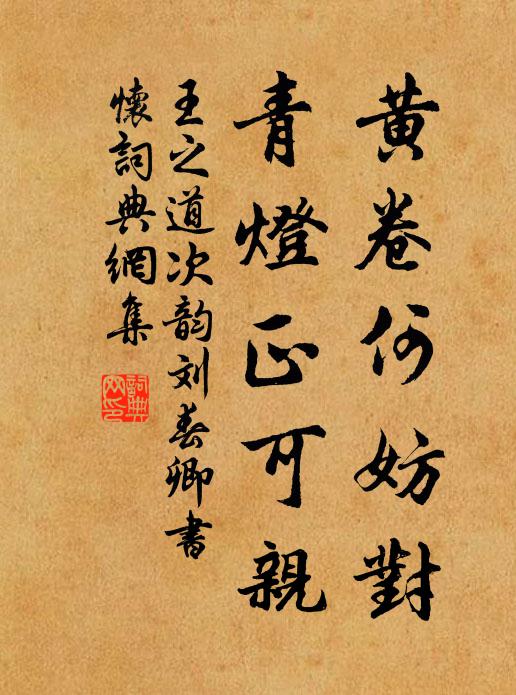 黃卷何妨對
青燈正可親
王之道次韵刘春卿書
懷詞典網集
詞典
网印